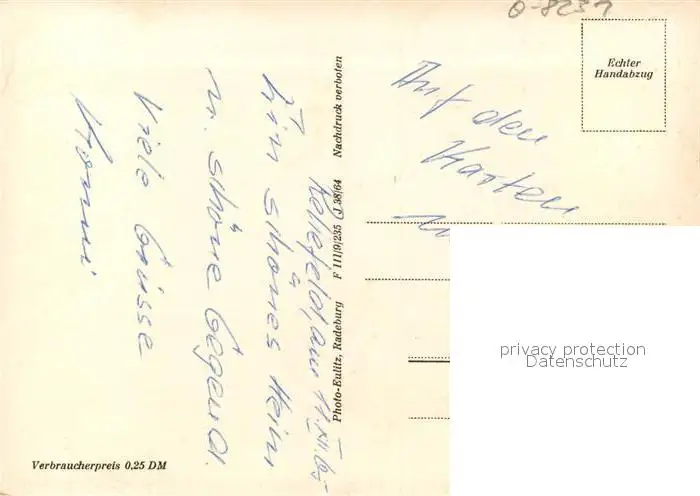 Kellefeld, am 11. XII. 65
Ein schönes Heim
u. schöne Gegend.
Viele Grüsse
Photo-Eulitz, Radeburg F 111/9/235 (J 38/64 Nachdruck verboten
Verbraucherpreis 0,25 DM
Echter
Handabzug
Auf den
Karten
privacy protection
Datenschutz